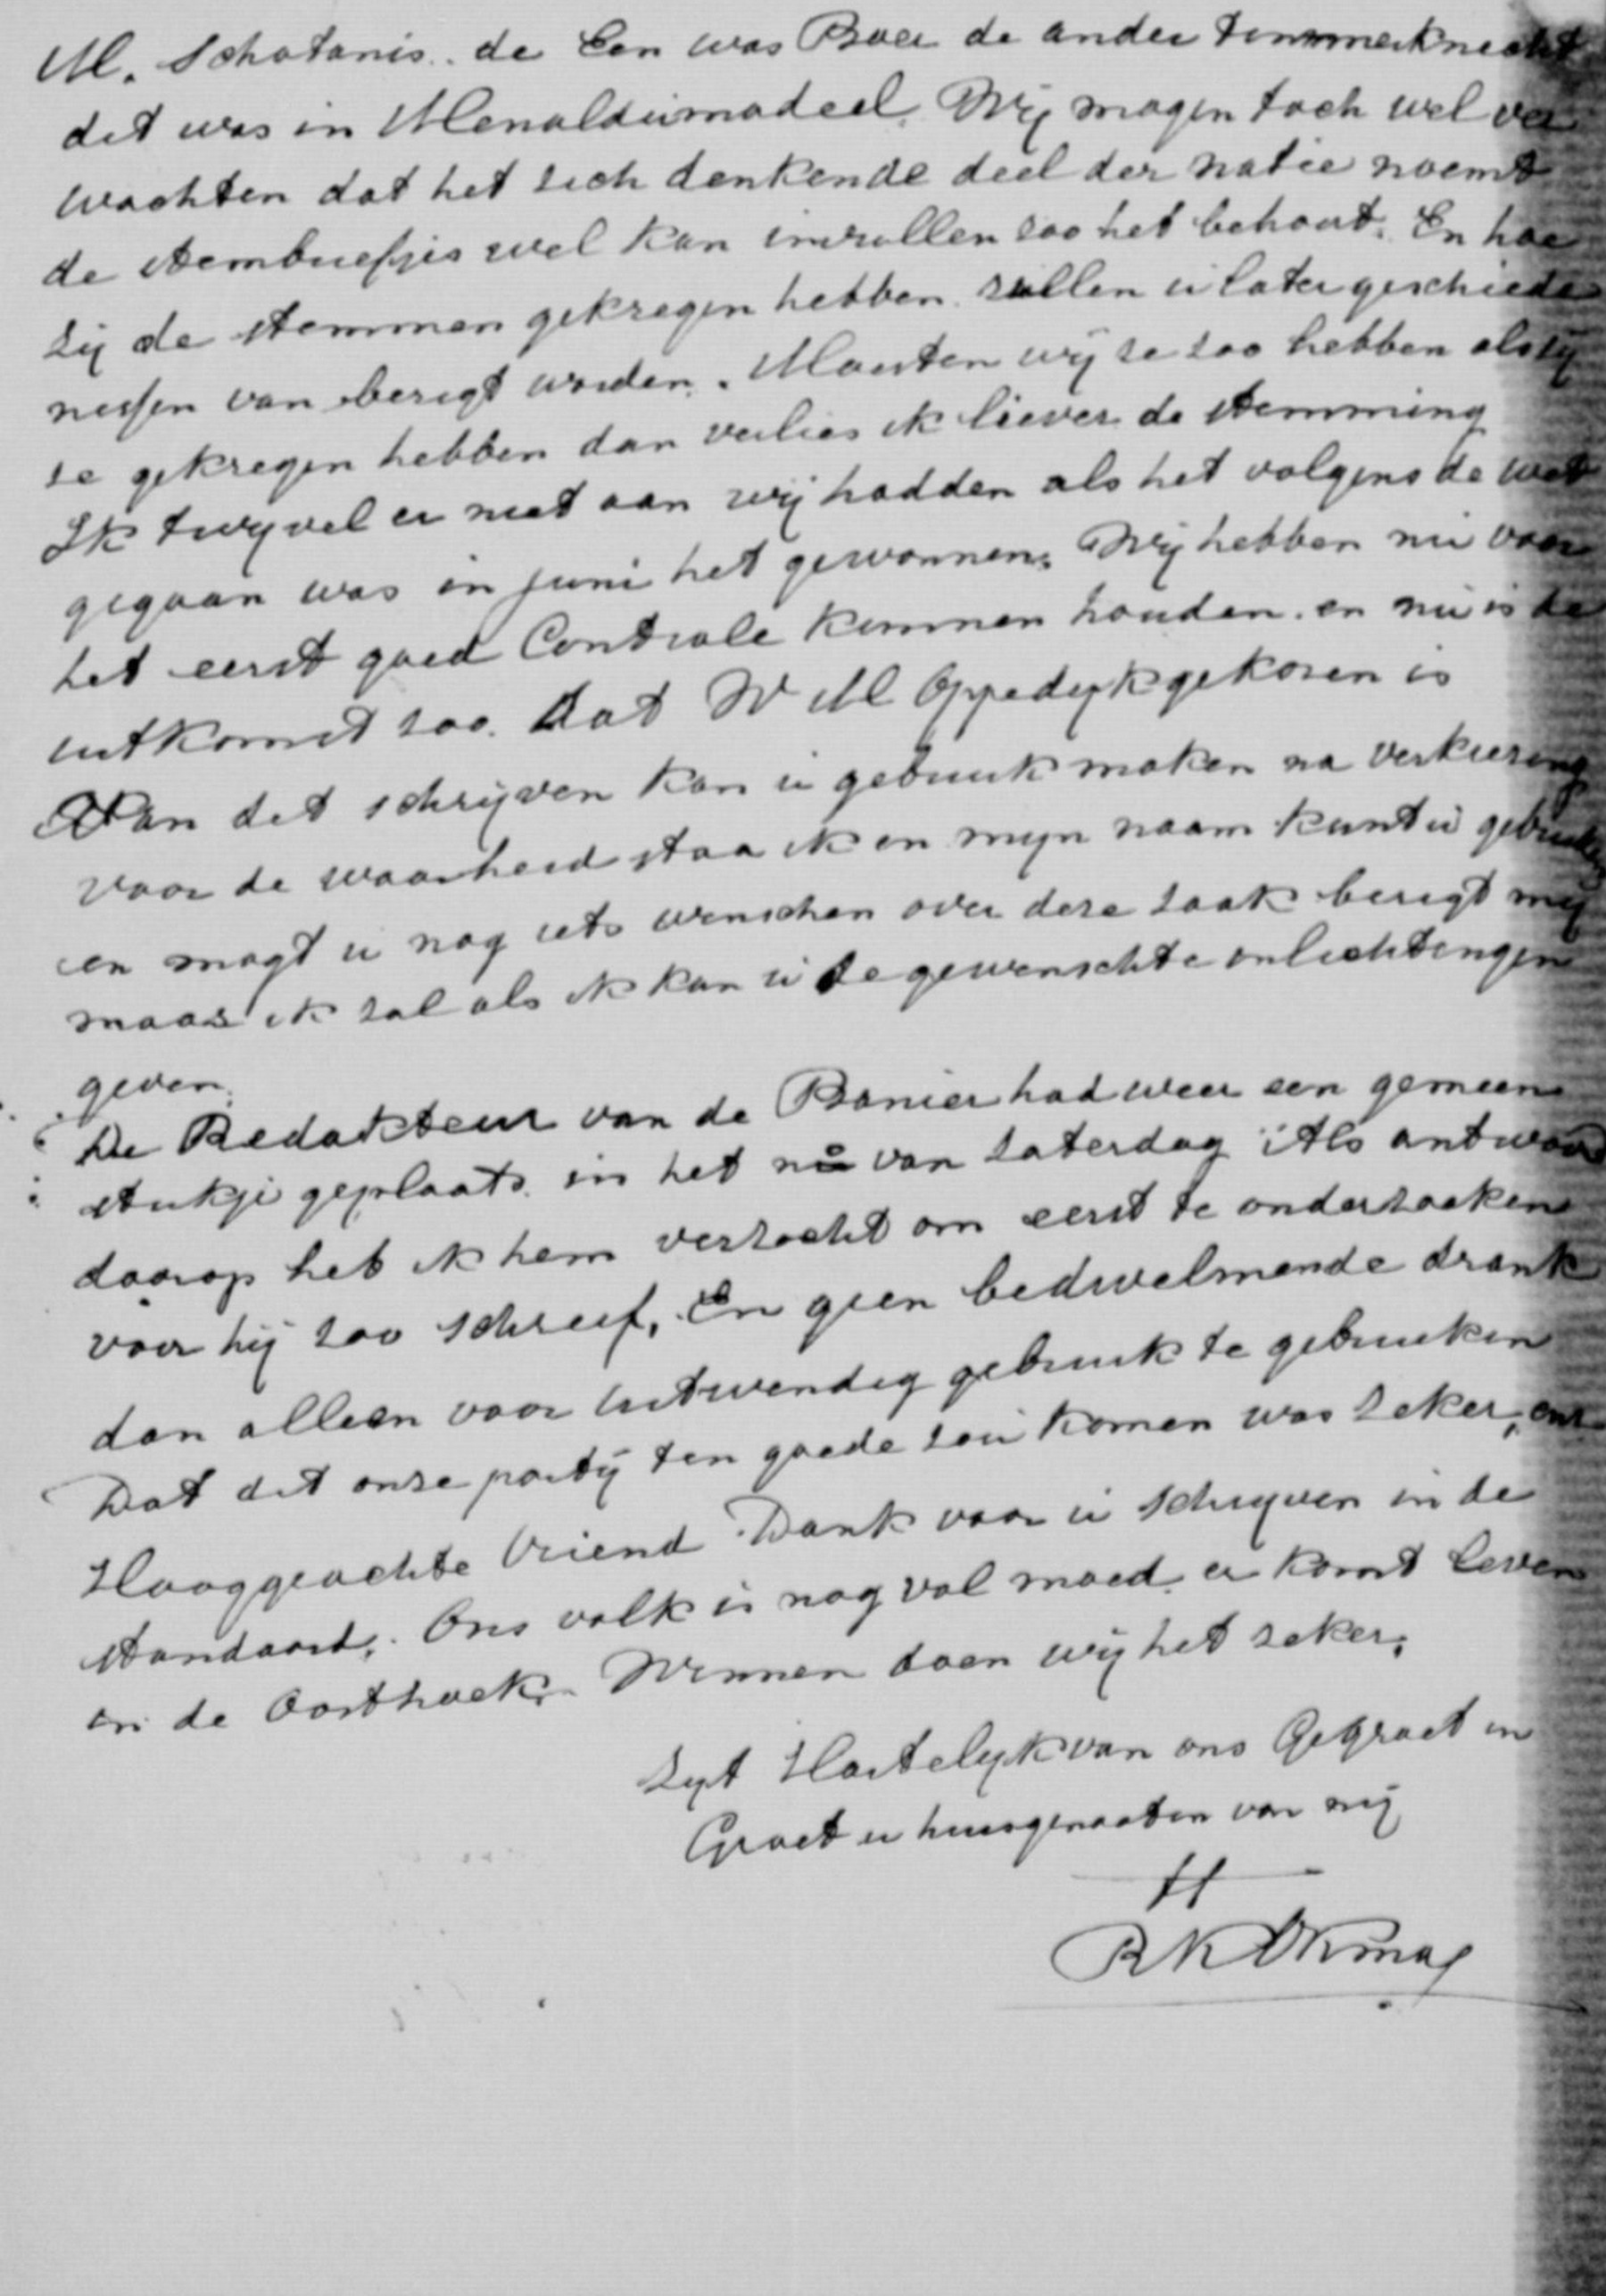 M. Schotanis. de Een was Boer de ander timmerknecht
dit was in Menaldumadeel. Wij mogen toch wel ver
wachten dat het zich denkende deel der natie noemt
de stembriefjes wel kan invullen zoo het behoort. En hoe
zij de stemmen gekregen hebben zullen u later geschiede
nissen van berigt worden. Mousten wij ze zoo hebben als zij
ze gekregen hebben dan verlies ik liever de stemming
Ik twijvel er niet aan wij hadden als het volgens de wet
gegaan was in juni het gewonnen. Wij hebben nu voor
het eerst goed Controle kunnen houden. en nu is de
uitkomst zoo. dat W M Oppedijk gekozen is
Van dit schrijven kan u gebruik maken na verkiezing
voor de waarheid staa ik en mijn naam kunt u gebruiken
en mogt u nog iets wenschen over deze zaak berigt mij
maar ik zal als ik kan u de gewenschte inlichtingen
geven.
De Redakteur van de Banier had weer een gemeen
stukje geplaats in het no van Zaterdag Als antwoord
daarop heb ik hem verzocht om eerst te onderzoeken
voor hij zoo schreef. En geen bedwelmende drank
dan alleen voor uitwendig gebruik te gebruiken
Dat dit onze partij ten goede zou komen was zeker,
Hooggeachte Vriend Dank voor u schrijven in de
standaard. Ons volk is nog vol moed er komt leven
in de Oosthoek. Winnen doen wij het zeker.
Zijt Hartelijk van ons Gegroet en
Groet u huisgenooten van mij
R K